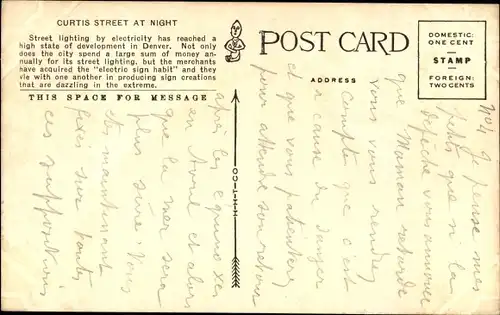 CURTIS STREET AT NIGHT
Street lighting by electricity has reached a
high state of development in Denver. Not only
does the city spend a large sum of money an-
nually for its street lighting, but the merchants
have acquired the "electric sign habit" and they
vie with one another in producing sign creations
that are dazzling in the extreme.
THIS SPACE FOR MESSAGE
POST CARD
ADDRESS
DOMESTIC:
ONE CENT
STAMP
FOREIGN:
TWO CENTS
H-H-T-CO
No 4 Je pense mes
petits que si la
dépêche vous annonce
que Maman retarde
vous vous rendez
compte que c'est
à cause du danger
et que vous patientez
pour attendre son retour
après les equinoxes
en Avril et alors
que la mer sera
plus sûre. Vous
êtes maintenant
fixés sur toutes
ces suppositions